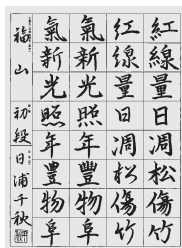 紅線量日凋松傷竹
紅線量日凋松傷竹
氣新光照年豐物阜
氣新光照年豊物阜
福山 初段 日浦千秋